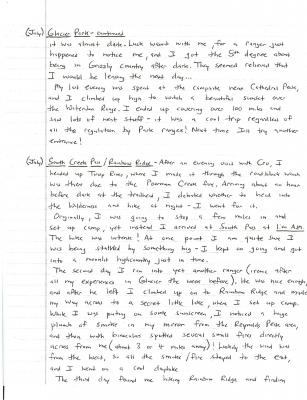 (July) Glacier Park - continued
it was almost dark. Luck went with me, for a ranger just
happened to notice me, and I got the 5th degree about
being in Grizzly country after dark. They seemed relieved that
I would be leaving the next day...
My last evening was spent at the campsite near Cathedral Peak,
and I climbed up high to watch a beautiful sunset over
the Waterton Range. I ended up covering over 100 miles and
saw lots of neat stuff - it was a cool trip regardless of
all the regulation by Park rangers! Next time I'll try another
entrance!
(July) South Creek Pass / Rainbow Ridge - After an evening visit with Cro, I
headed up Tirup River, where I made it through the roadblock which
was there due to the Poorman Creek fire. Arriving about an hour
before dark at the trailhead, I debated whether to head into
the wilderness and hike at night - I went for it.
Originally, I was going to stop a few miles in and
set up camp, yet instead I arrived at South Pass at 1:00 A.M.
The hike was intense! At one point I am quite sure I
was being stalked by something big - I kept on going and got
into a moonlit high country just in time.
The second day I ran into yet another ranger (ironic after
all my experiences in Glacier the week before). He was nice enough,
and after he left I climbed up on to Rainbow Ridge and made
my way across to a secret little lake, where I set up camp.
While I was putting on some sunscreen, I noticed a huge
plume of smoke in my mirror from the Reynolds Peak area,
and then with binoculars spotted several small fires directly
across from me (about 3 or 4 miles away)! Luckily the wind was
from the west, so all the smoke/fire stayed to the east,
and I went on a cool dayhike.
The third day found me hiking Rainbow Ridge and finding